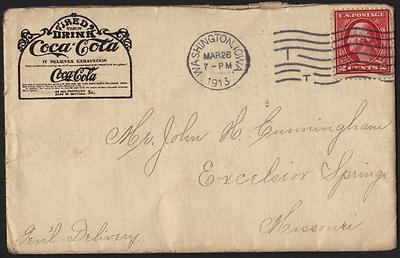 TIRED?
THEN
DRINK
Coca-Cola
IT RELIEVES EXHAUSTION
Coca-Cola
5c.
WASHINGTON, IOWA.
MAR 26
7 - PM
1913
T
T
U.S. POSTAGE
2 CENTS 2
Mr. John H. Cunningham
Excelsior Springs
Missouri.
Gen'l Delivery